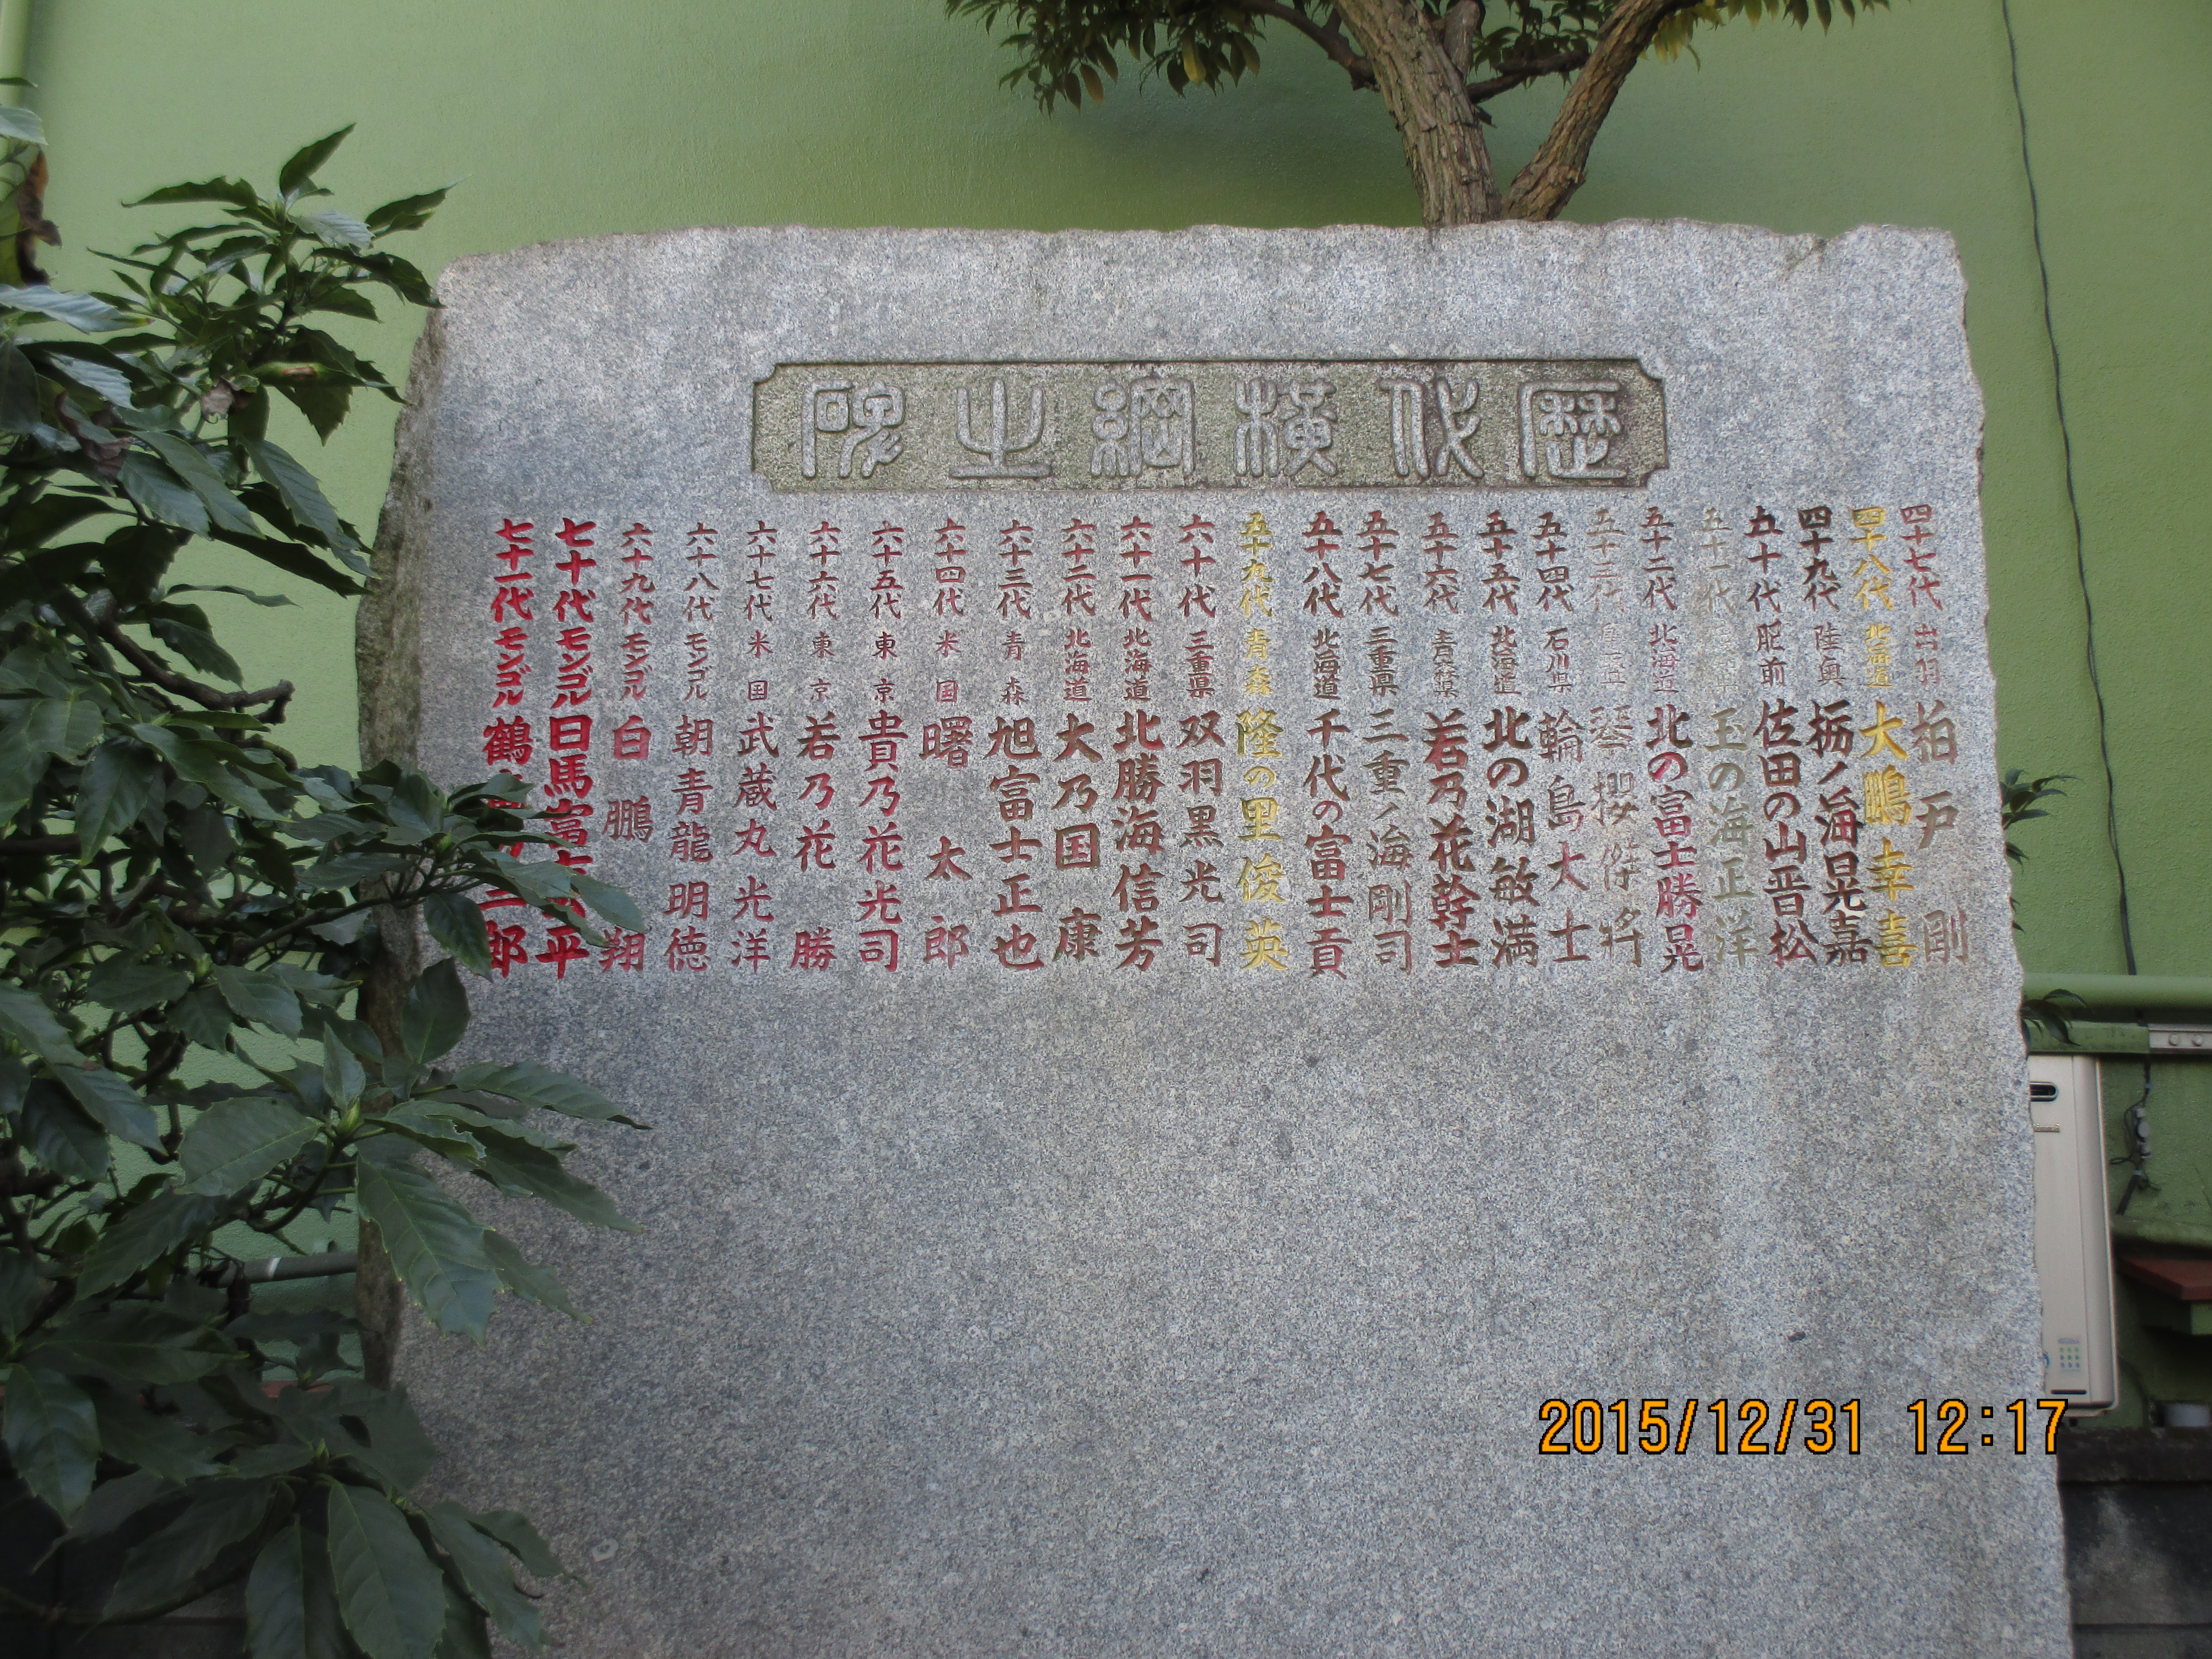 歴代横綱之碑
四十七代 出羽 柏戸剛
四十八代 北海道 大鵬幸喜
四十九代 陸奥 栃ノ海晃嘉
五十代 肥前 佐田の山晋松
五十一代 玉の海正洋
五十二代 北海道 北の富士勝晃
五十三代 琴櫻傑将
五十四代 石川県 輪島大士
五十五代 北海道 北の湖敏満
五十六代 青森県 若乃花幹士
五十七代 三重県 三重ノ海剛司
五十八代 北海道 千代の富士貢
五十九代 青森 隆の里俊英
六十代 三重県 双羽黒光司
六十一代 北海道 北勝海信芳
六十二代 北海道 大乃国康
六十三代 青森 旭富士正也
六十四代 米国 曙太郎
六十五代 東京 貴乃花光司
六十六代 東京 若乃花勝
六十七代 米国 武蔵丸光洋
六十八代 モンゴル 朝青龍明徳
六十九代 モンゴル 白鵬翔
七十代 モンゴル 日馬富士公平
七十一代 モンゴル 鶴三郎
2015/12/31 12:17